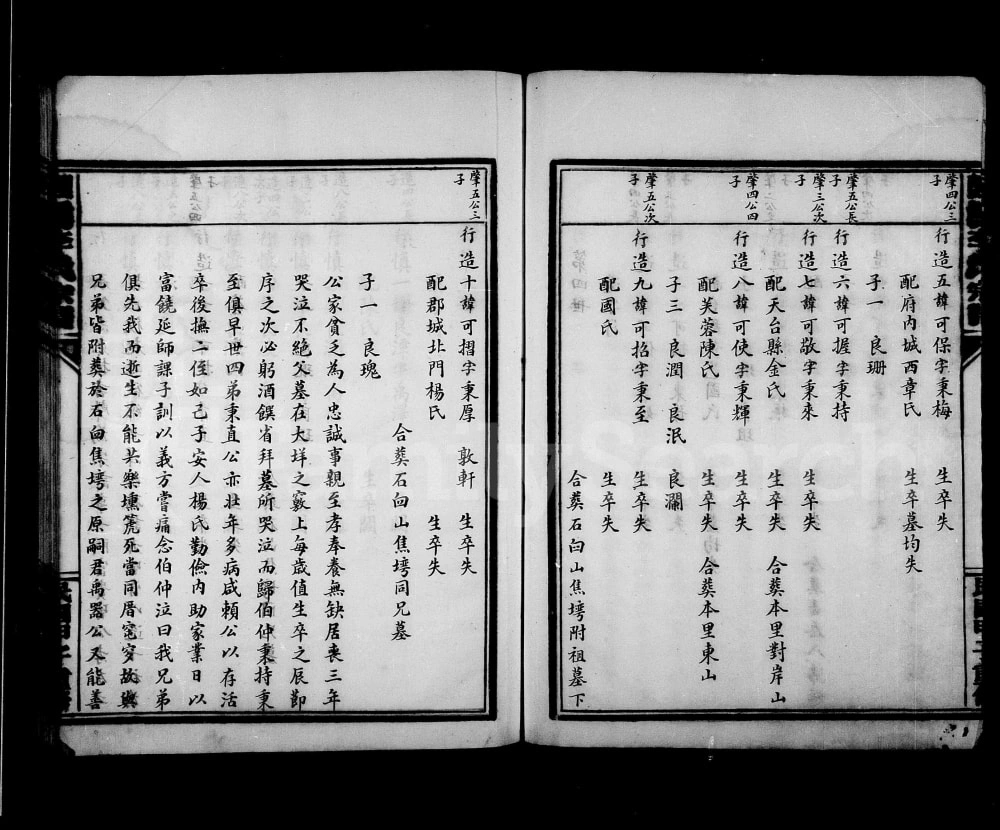 肇四公三子
行造五諱可保字秉梅 生卒失
配府内城西章氏 生卒墓均失
子一 良珊
肇五公長子
行造六諱可握字秉持
肇三公次子
行造七諱可敬字秉來 生卒失
配天台縣金氏 生卒失 合葬本里對岸山
肇四公四子
行造八諱可使字秉輝 生卒失
配芙蓉陳氏 生卒失 合葬本里東山
子三 良潤 良泯 良瀾
肇五公次子
行造九諱可招字秉至 生卒失
配國氏 生卒失
合葬石臼山焦塆附祖墓下
肇五公三子
行造十諱可摺字秉厚 敦軒 生卒失
配郡城北門楊氏 生卒失
合葬石臼山焦塆同兄墓
子一 良瑰
公家貧乏為人忠誠事親至孝奉養無缺居喪三年
哭泣不絶父墓在大垟之竅上每歲值生卒之辰節
序之次必躬酒饌省拜墓所哭泣而歸伯仲秉持秉
至俱早世四弟秉直公亦壯年多病咸賴公以存活
卒後撫二侄如己子安人楊氏勤儉内助家業日以
富饒延師課子訓以義方嘗痛念伯仲泣曰我兄弟
俱先我而逝生不能共樂壎箎死當同厝窀穸故與
兄弟皆附葬於石臼焦塆之原嗣君禹器公又能善
FamilySearch